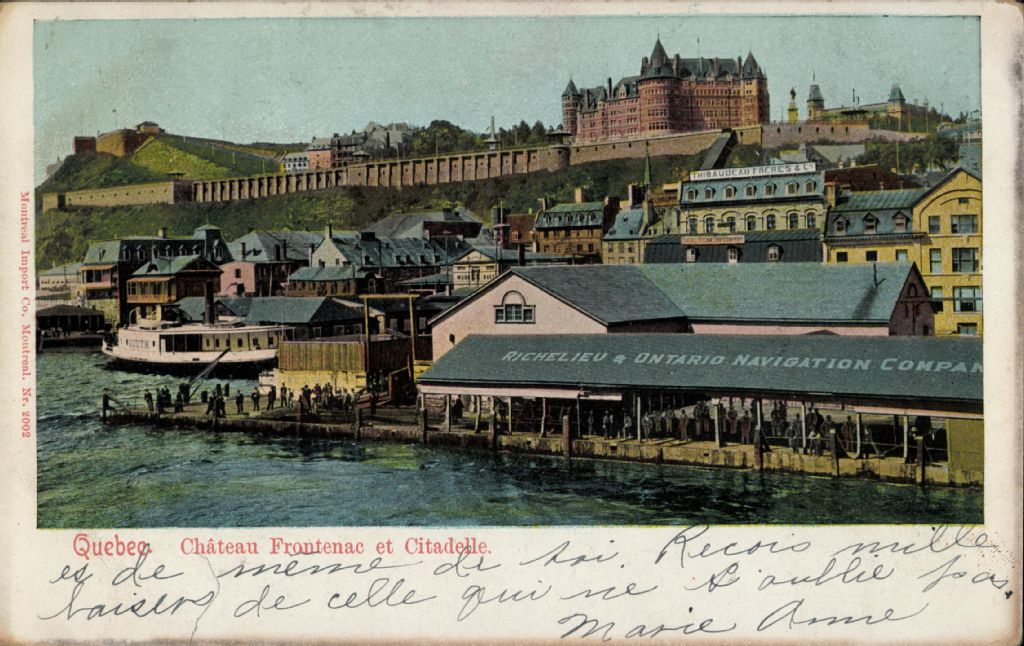 THIBAUDEAU FRÈRES & Cie
RICHELIEU & ONTARIO NAVIGATION COMPAN
SOUTH
Montreal Import Co. Montreal. Nr. 2002
Quebec. Château Frontenac et Citadelle.
es de même de toi. Recois mille
baisers de celle qui ne t'oublie pas.
Marie Anne